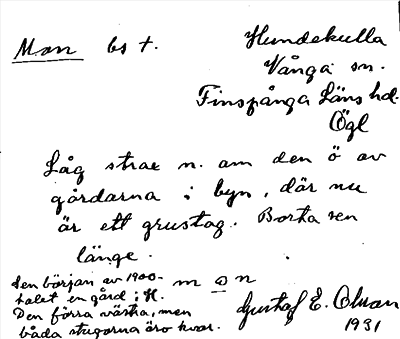 Mon bs t.
Hundekulla
Vånga sn.
Finspånga Läns hd.
Ögl
Låg strax n. om den ö av
gårdarna i byn, där nu
är ett grustag. Borta sen
länge.
m o n
Sen början av 1900-
talet en gård i H.
Den förra västra, men
båda stugorna äro kvar.
Gustaf E. Olson
1931